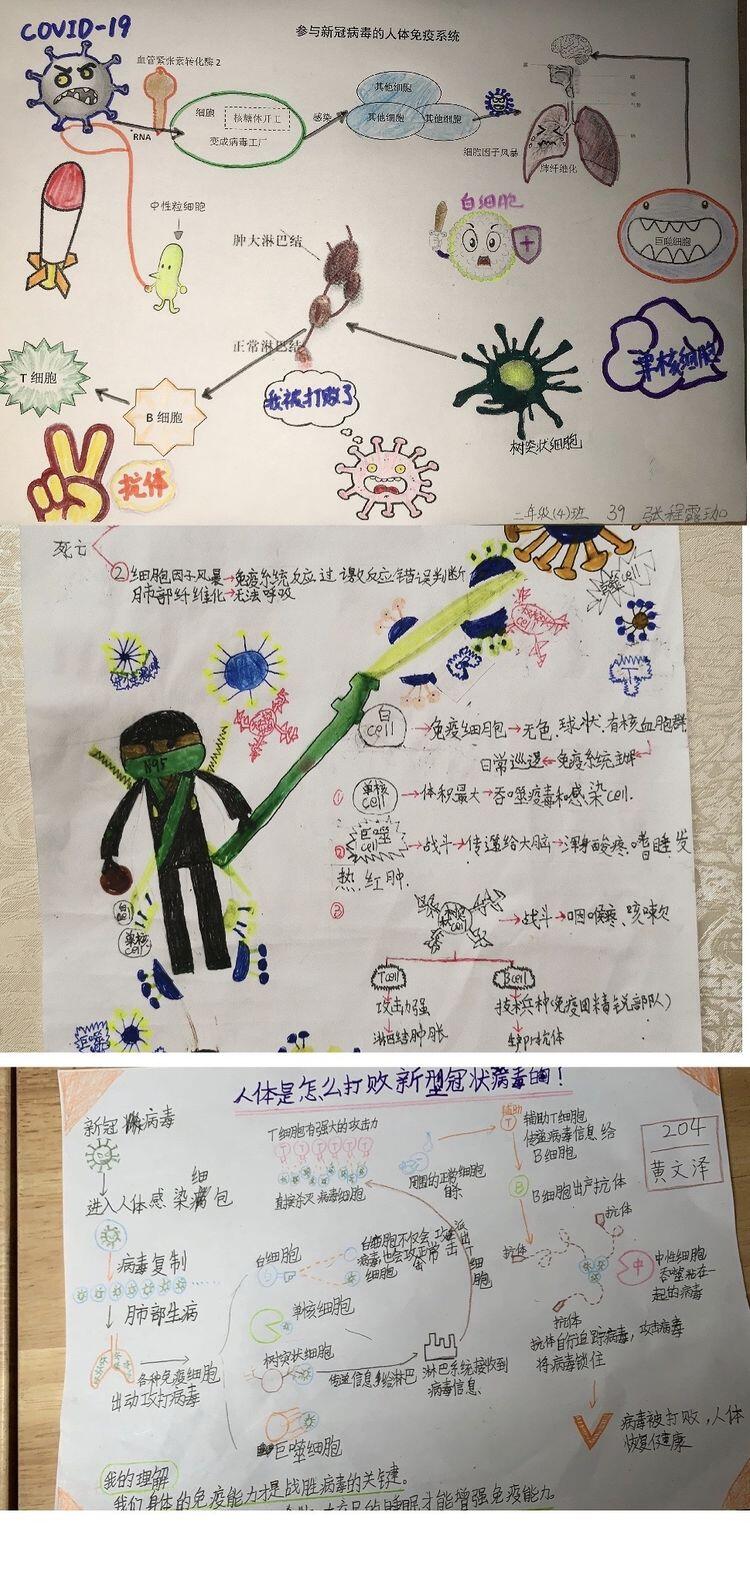 COVID-19
参与新冠病毒的人体免疫系统
血管紧张素转化酶2
RNA
细胞
核糖体开工
变成病毒工厂
感染
其他细胞
其他细胞
其他细胞
细胞因子风暴
肺纤维化
中性粒细胞
肿大淋巴结
正常淋巴结
白细胞
巨噬细胞
单核细胞
树突状细胞
T 细胞
B 细胞
抗体
我被打败了
二年级(4)班 39 张程露珈
死亡
②细胞因子风暴→免疫系统反应过激反应错误判断
肺部纤维化→无法呼吸
N95
白cell
单核cell
白cell→免疫细胞→无色、球状、有核血胞群
日常巡逻←免疫系统
①单核cell→体积最大→吞噬病毒和感染cell.
②巨噬cell→战斗→传递给大脑→浑身酸疼、嗜睡、发
热、红肿.
③
→战斗→咽喉疼、咳嗽
Tcell
Bcell
攻击力强
技术兵种(免疫因毒锐部队)
淋巴结肿胀
生产抗体
巨噬
人体是怎么打败新型冠状病毒的!
204
黄文泽
新冠病毒
进入人体感染细包
病毒复制
肺部生病
各种免疫细胞
出动攻打病毒
T细胞有强大的攻击力
直接杀灭病毒细胞
周围的正常细胞
白细胞
白细胞不仅会攻
病毒也会攻正常
细胞
派出T细胞
单核细胞
树突状细胞
传递信息给淋巴
淋巴系统接收到
病毒信息
巨噬细胞
辅助T
辅助T细胞
传递病毒信息给
B细胞
B
B细胞出产抗体
抗体
抗体
抗体
中性细胞
吞噬粘在一
起的病毒
抗体自行追踪病毒，攻击病毒
将病毒锁住
病毒被打败，人体
恢复健康
我的理解
我们身体的免疫能力才是战胜病毒的关键。
充足的睡眠才能增强免疫能力。